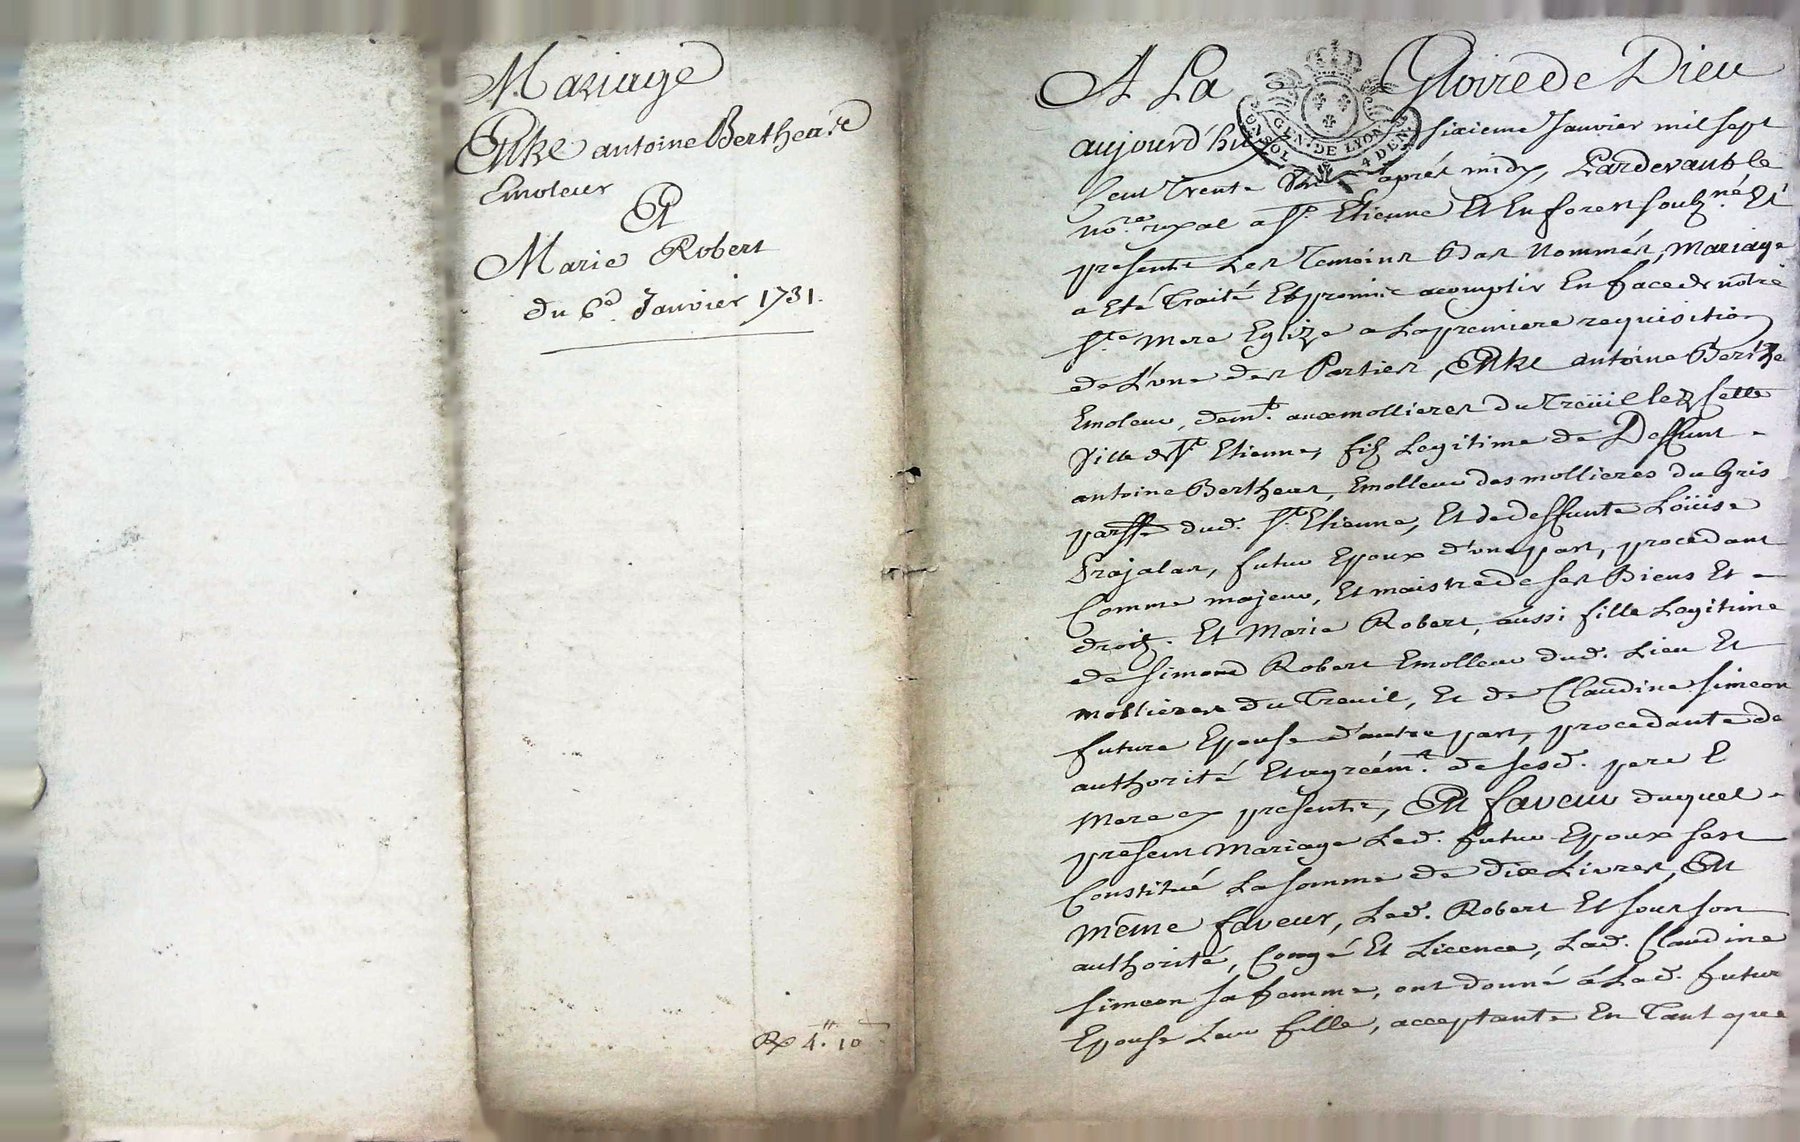 Mariage
Entre antoine Bertheas
Emoleur
Et
Marie Robert
du 6e. Janvier 1731.
Rx 4.lt 10
A La Gloire de Dieu
GEN. DE LYON
UN SOL 4 DEN.
aujourd'huy sixieme Janvier mil sept
Cent Trente aprés midy, Pardevant le
no.re royal a st. Etienne Et En forest soubz.né Et
presents Les Temoins Bas Nommés, Mariage
a Eté Traité Et promis acomplir En face de notre
ste. Mere Eglize a La premiere requisition
de L'une des Parties, Entre antoine Berthe
Emoleur, dem.t aux mollieres du Treüil Lez Cette
Ville de st. Etienne, filz Legitime de Deffunt
antoine Bertheas, Emolleur des mollieres du Gris
parsse dud. st. Etienne, Et de deffunte Loüise
Prajalas, futur Epoux d'une part, procedant
Comme majeur, Et maistre de ses Biens Et
droitz. Et Marie Robert, aussi fille Legitime
de simond Robert Emolleur dud. Lieu Et
mollieres du Treuil, Et de Claudine simeon
future Epouse d'autre part, procedante de
authorité Et agréém.t de sesd. pere E
Mere cy presents, En faveur duquel
present Mariage Led. futur Epoux sest
Constitué La somme de dix Livres, En
même faveur, Led. Robert Et sous son
authorité, Congé Et Licence, Lad. Claudine
simeon sa femme, ont donné a Lad. futur
Epouse Leur fille, acceptante En Tant que